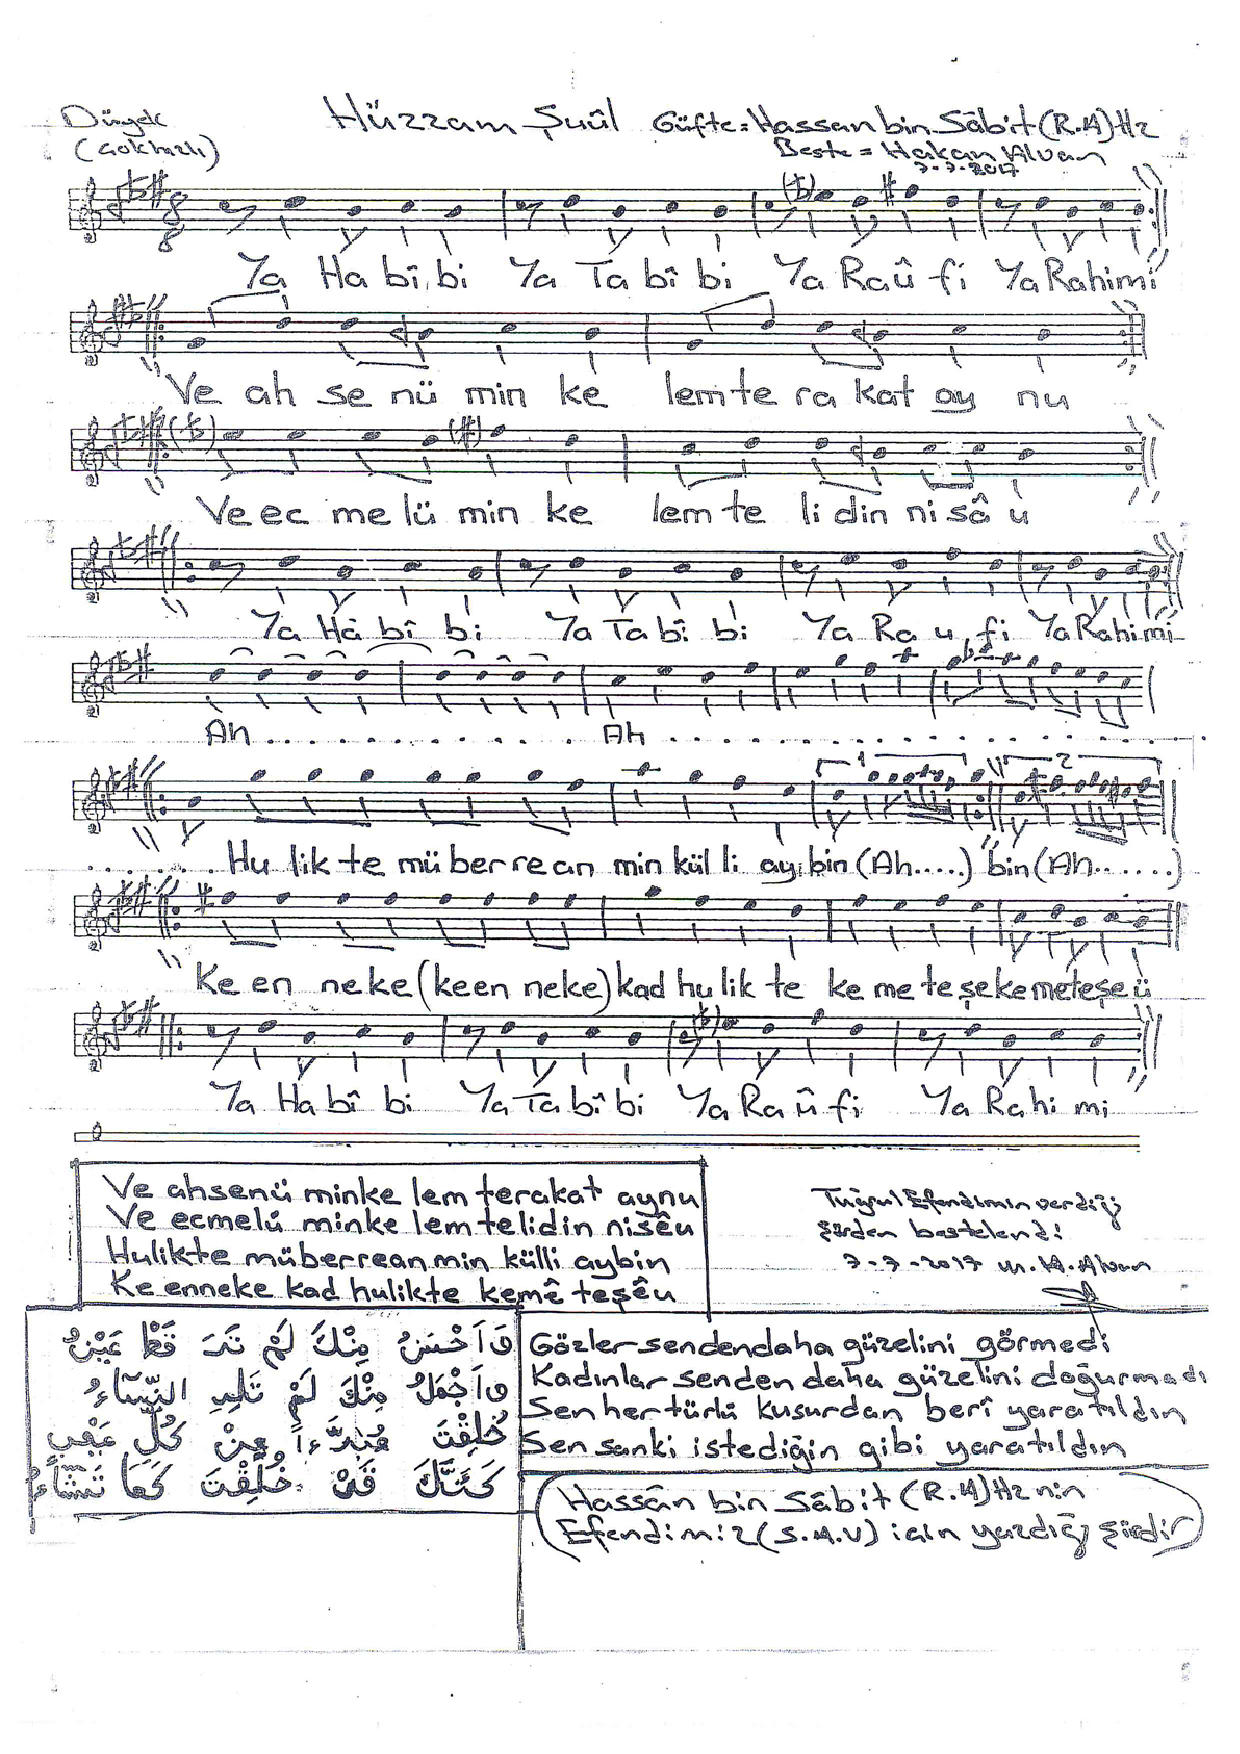 Düyek
(Çok hızlı)
Hüzzam Şuûl
Güfte = Hassan bin Sâbit (R.A) Hz
Beste = Hakan Alvan
7.7.2017
8
8
Ya Ha bî bi Ya Ta bî bi Ya Raû fi Ya Rahimi
Ve ah se nü min ke lem te ra kat ay nu
Ve ec me lü min ke lem te li din ni sâ ü
Ya Ha bî bi Ya Ta bî bi Ya Ra u fi Ya Rahimi
Ah.............. Ah....................
1 2
....... Hu lik te mü ber re an min kül li ay bin (Ah.....) bin (Ah......)
Ke en ne ke (ke en ne ke) kad hu lik te ke me te şe ke me te şe ü
Ya Ha bî bi Ya Ta bî bi Ya Ra û fi Ya Ra hi mi
Ve ahsenü minke lem terakat aynu
Ve ecmelü minke lem telidin nisêu
Hulikte müberrean min külli aybin
Ke enneke kad hulikte kemê teşêu
Tuğrul Efendimin verdiği
şiirden bestelendi
7-7-2017 M.H.Alvan
وَاَحْسَنُ مِنْكَ لَمْ تَرَ قَطُّ عَيْنٌ
وَاَجْمَلُ مِنْكَ لَمْ تَلِدِ النِّسَٓاءُ
خُلِقْتَ مُبَرَّءاً مِنْ كُلِّ عَيْبٍ
كَاَنَّكَ قَدْ خُلِقْتَ كَمَا تَشَٓاءُ
Gözler senden daha güzelini görmedi
Kadınlar senden daha güzelini doğurmadı
Sen her türlü kusurdan berî yaratıldın
Sen sanki istediğin gibi yaratıldın
(Hassân bin Sâbit (R.A) Hz nin
Efendimiz (S.A.V) için yazdığı şiirdir)